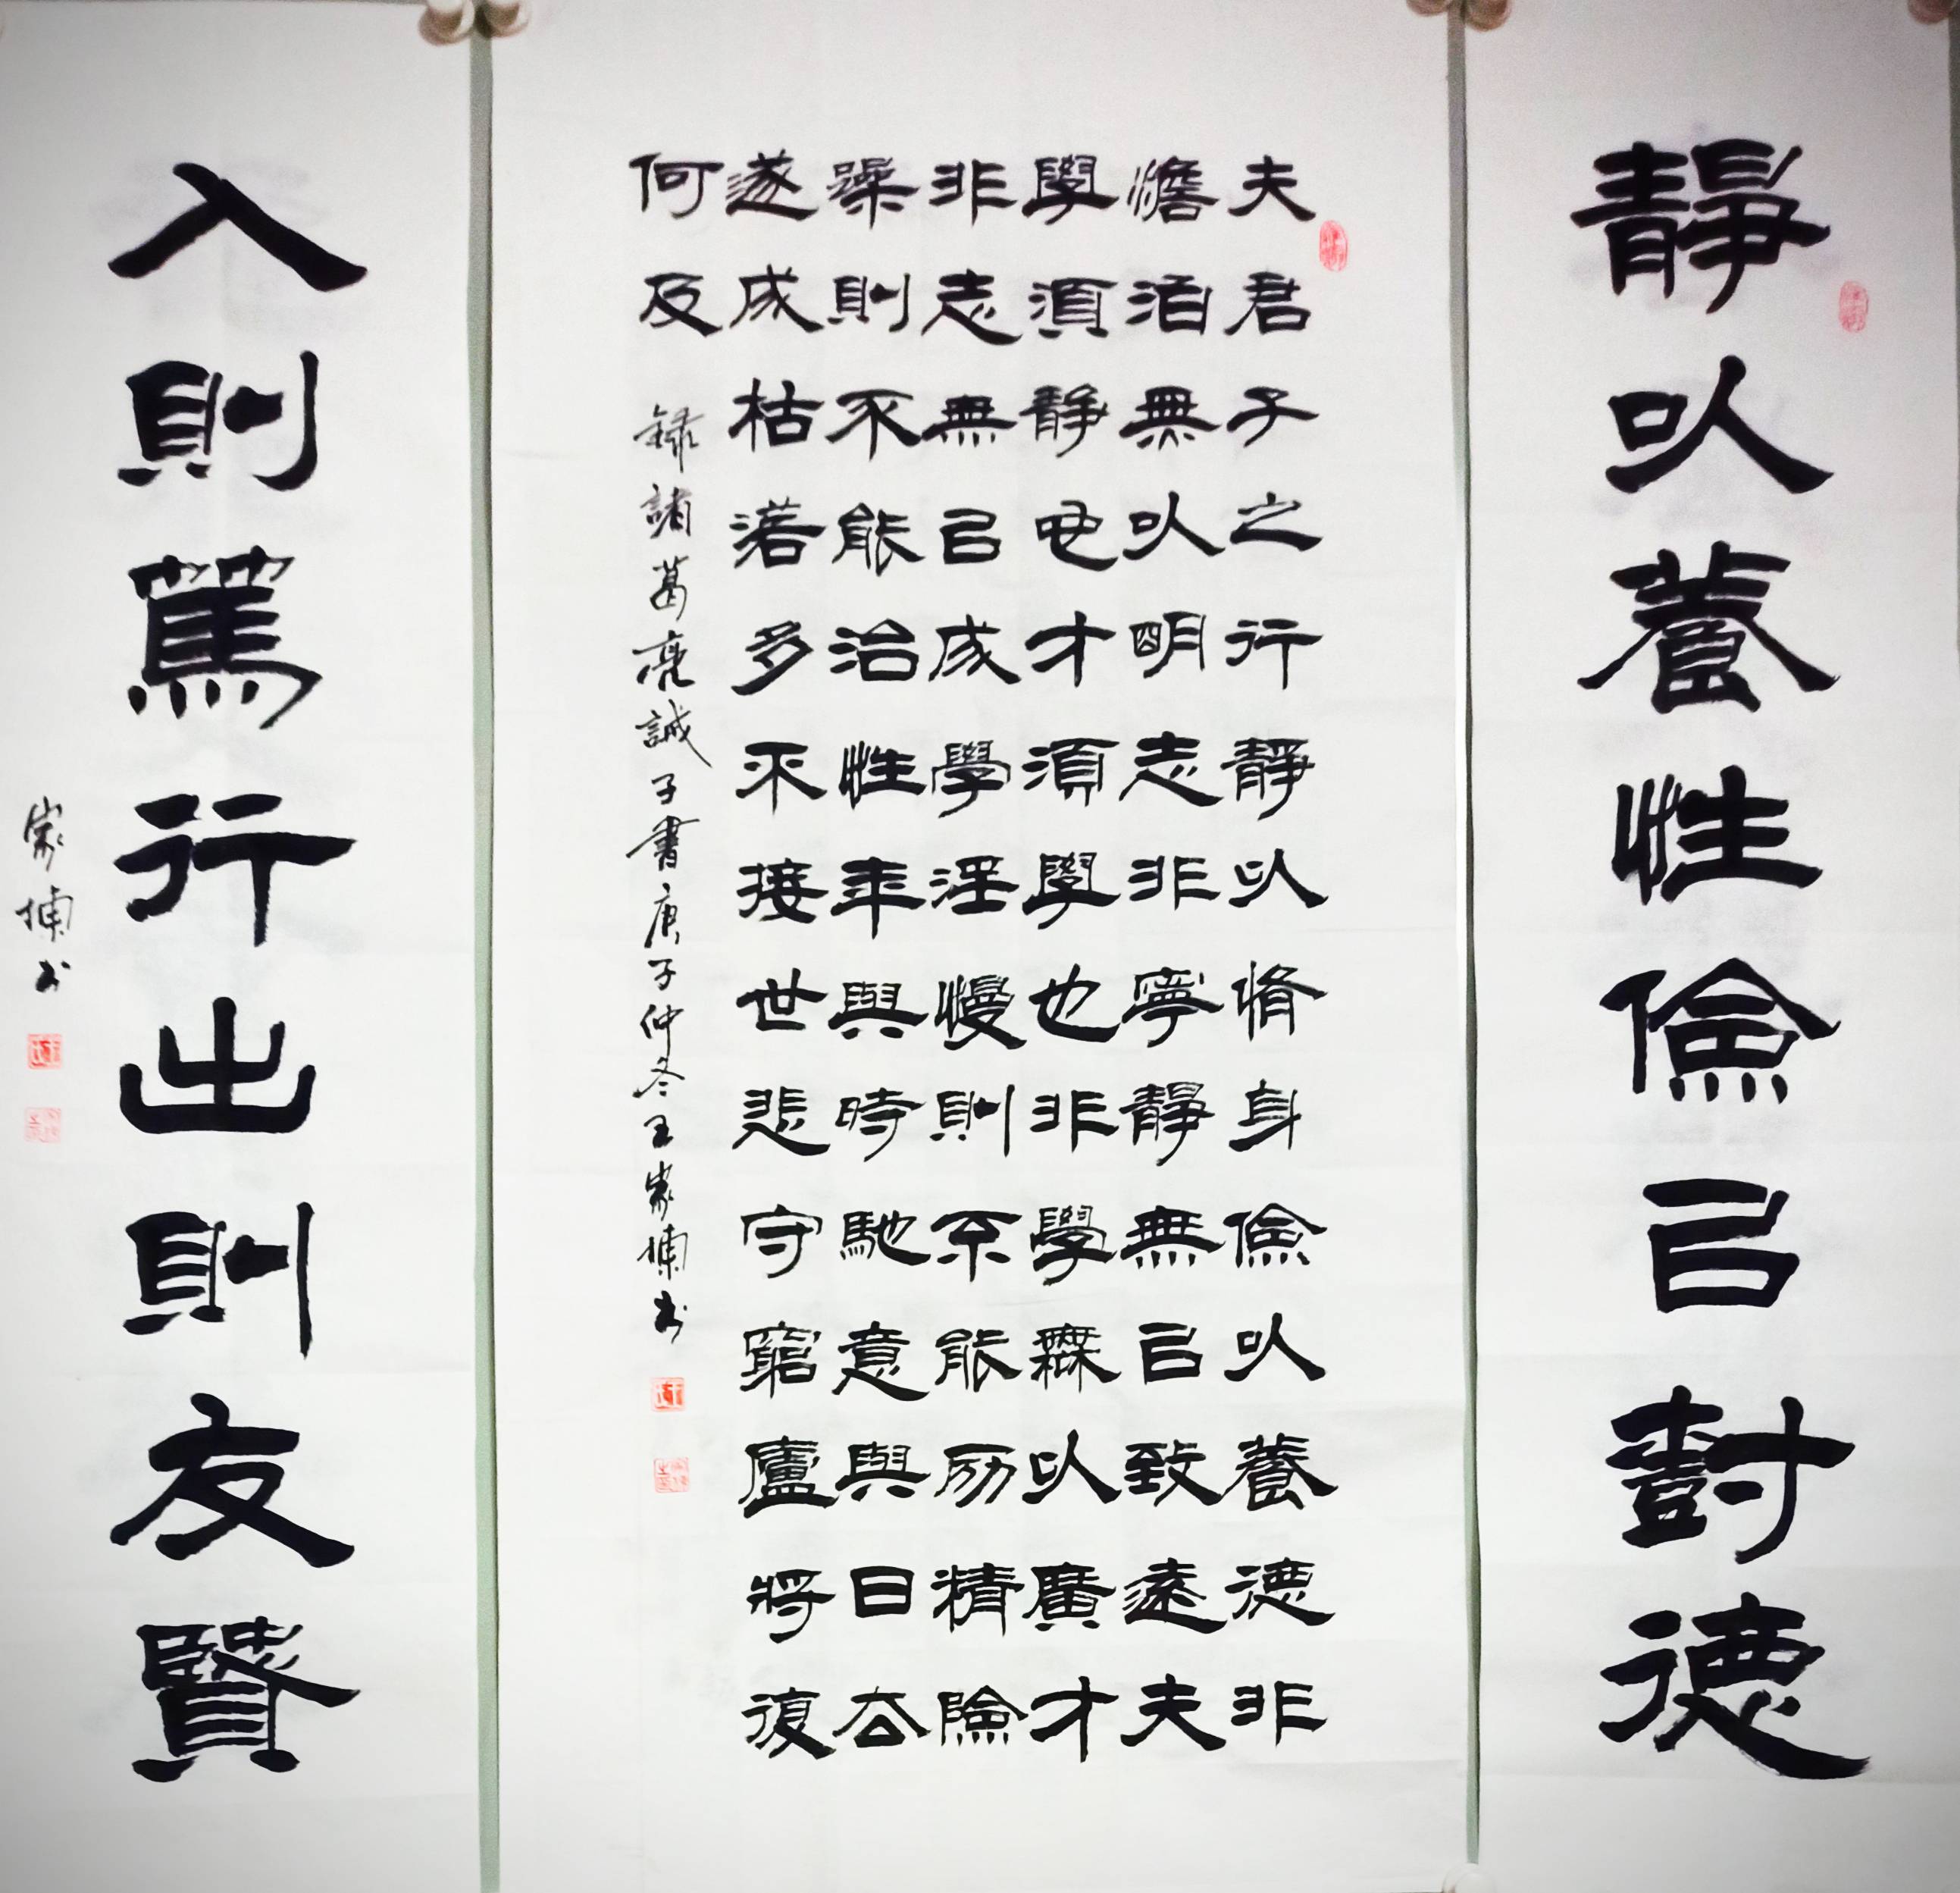 靜以養性儉以樹德
夫君子之行靜以脩身儉以養德非
憺泊無以明志非寧靜無以致遠夫
學須靜也才須學也非學無以廣才
非志無以成學淫慢則不能励精險
躁則不能治性年與時馳意與日去
遂成枯落多不接世悲守窮廬將復
何及 録諸葛亮誡子書庚子仲冬王家楠书
入則篤行出則友賢
家楠书